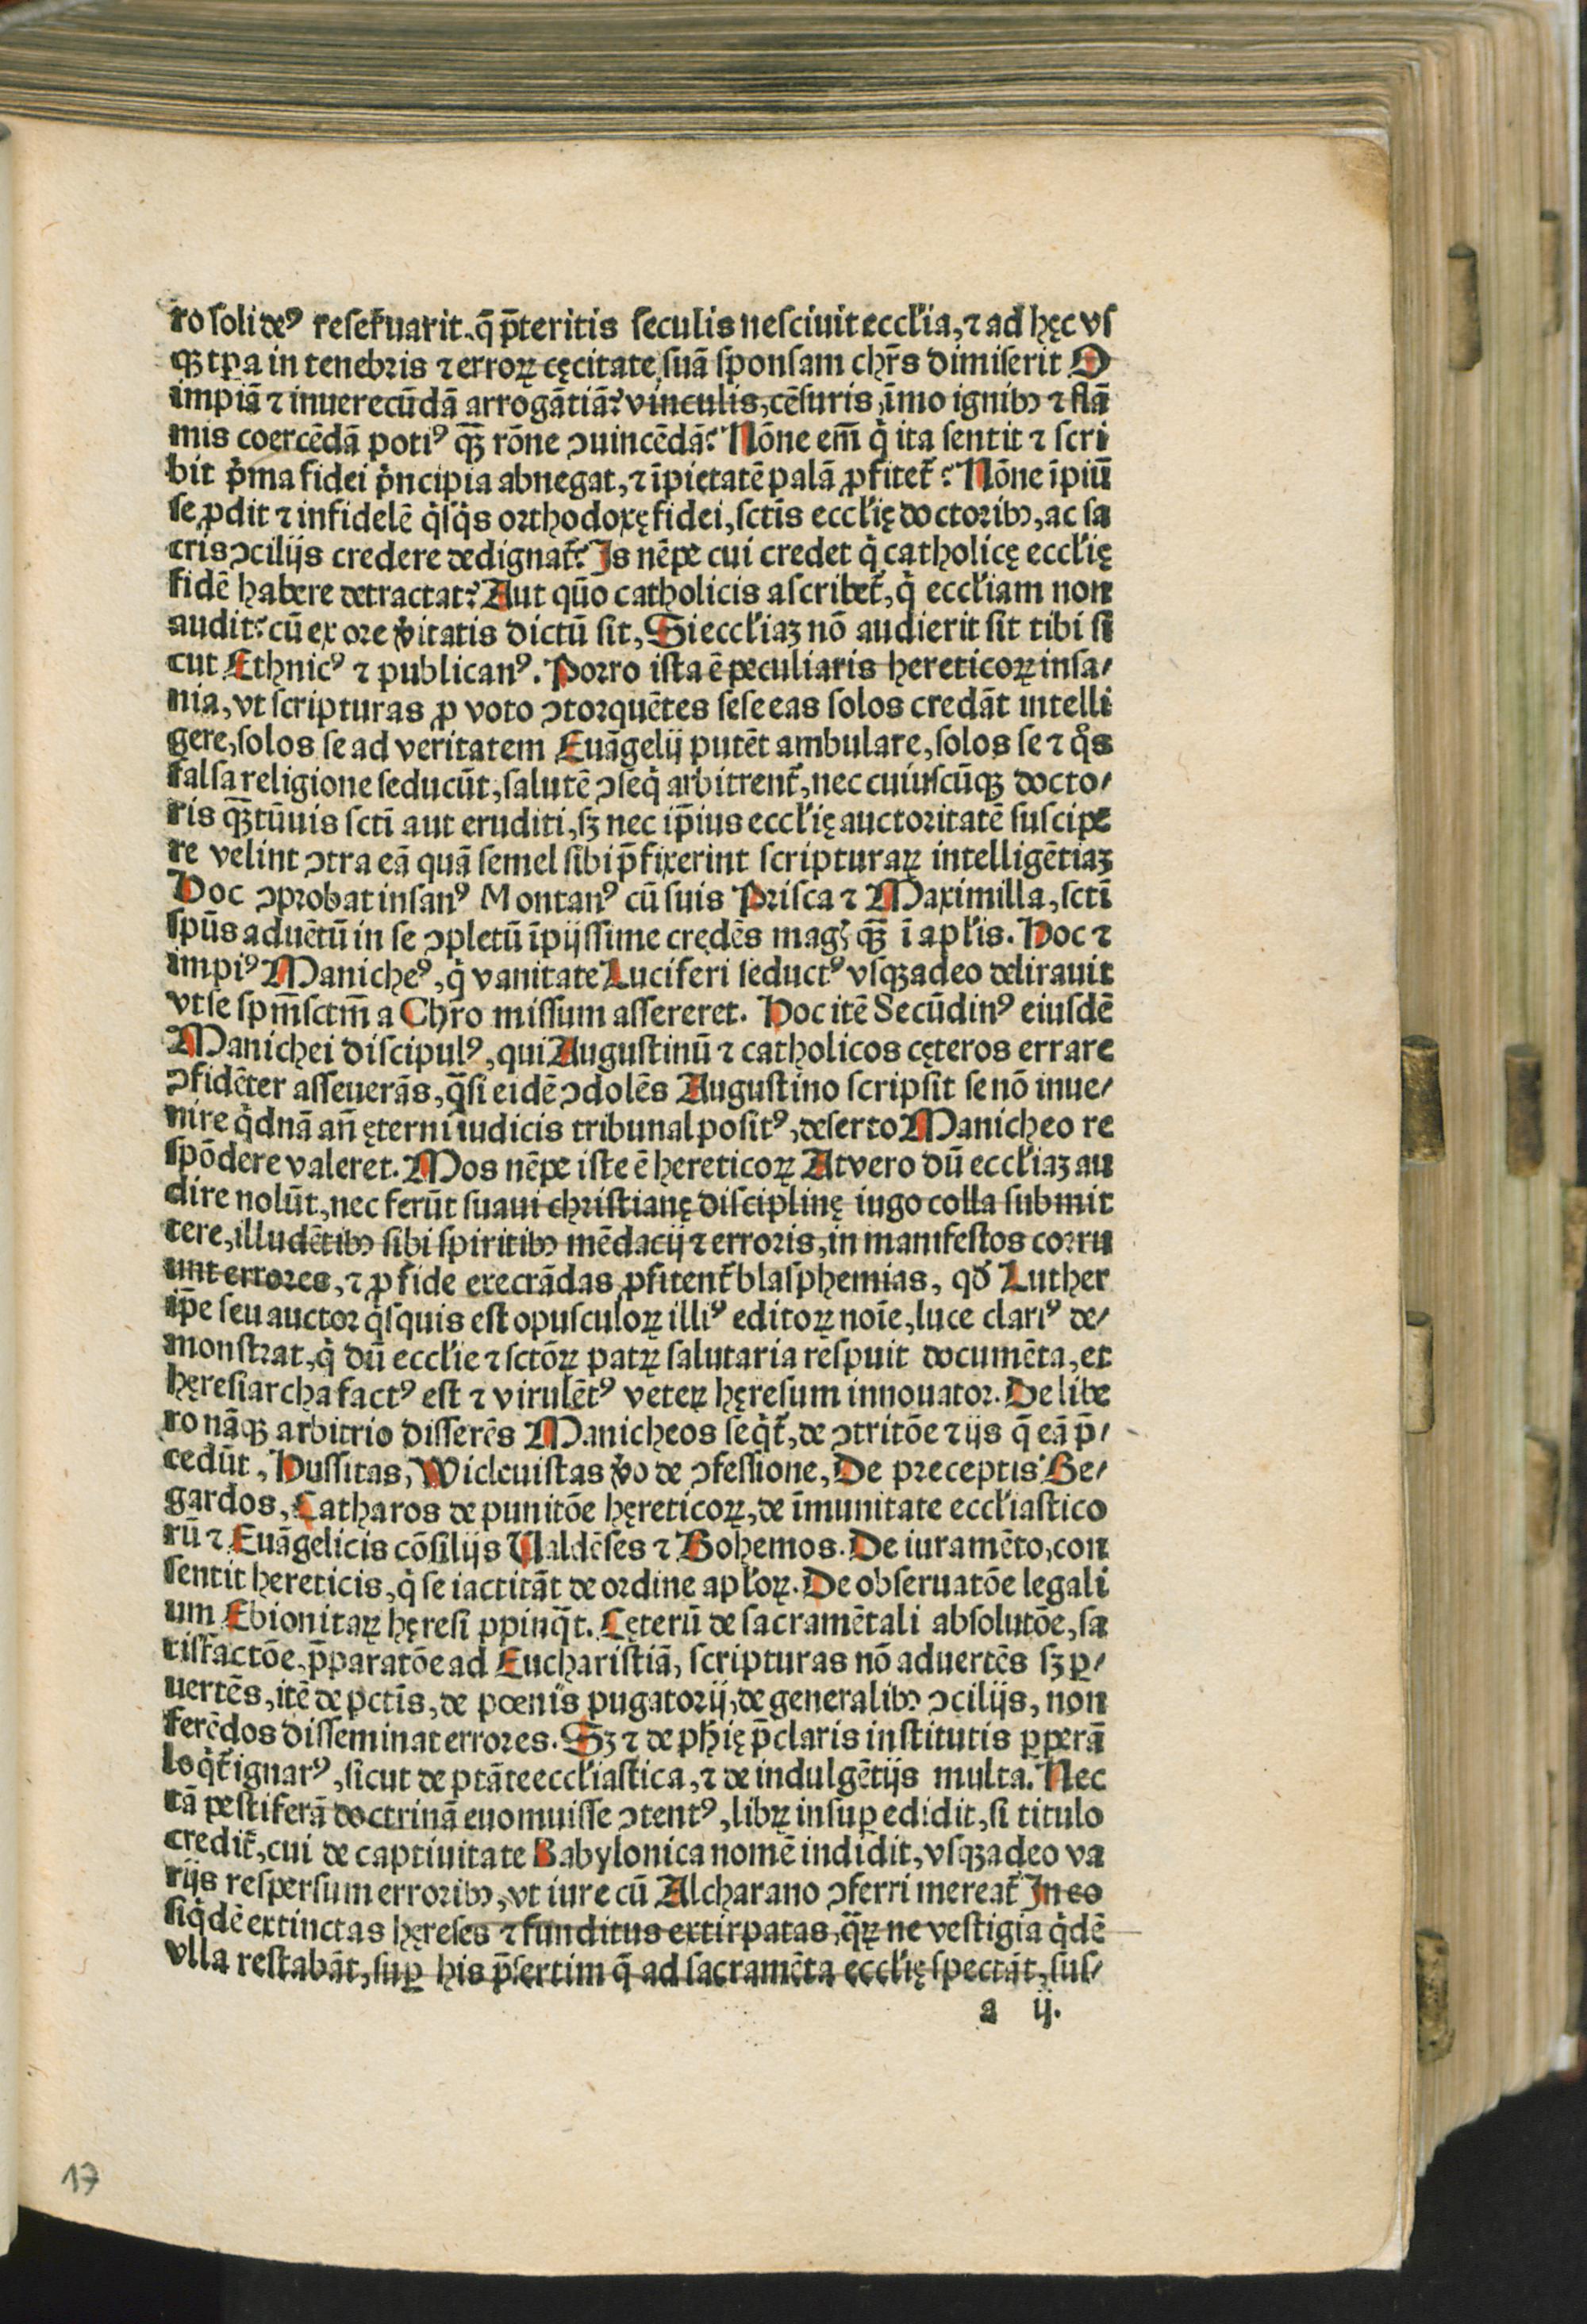 ro soli deꝰ reſeruarit, q̄ p̄teritis ſeculis neſciuit eccľia, ⁊ ad hęc vſ
qꝫ tꝑa in tenebris ⁊ erroꝝ cęcitate ſuā ſponſam chr̄s dimiſerit O
impiā ⁊ inuerecūdā arrogātiā? vinculis, cēſuris, īmo ignibꝰ ⁊ flā
mis coercēdā potiꝰ qꝫ̄ rōne ꝯuincēdā? Nōne em̄ q̇ ita ſentit ⁊ ſcri
bit p̍ma fidei p̍ncipia abnegat, ⁊ īpietatē palā ꝓfitet̄? Nōne īpiū
ſe ꝓdit ⁊ infidelē q̇ſq̇s orthodoxę fidei, ſctīs eccľię doctoribꝰ, ac ſa
cris ꝯcilijs credere dedignat̄? Is nēpe cui credet q̇ catholicę eccľię
fidē habere detractat? Aut quō catholicis aſcribet̄, q̇ eccľiam non
audit? cū ex ore v̍itatis dictū ſit, Si eccľiaꝫ nō audierit ſit tibi ſi
cut Ethnicꝰ ⁊ publicanꝰ. Porro iſta ē peculiaris hereticoꝝ inſa/
nia, vt ſcripturas ꝓ voto ꝯtorquētes ſeſe eas ſolos credāt intelli
gere, ſolos ſe ad veritatem Euāgelij putēt ambulare, ſolos ſe ⁊ qͦs
falſa religione ſeducūt, ſalutē ꝯſeq̇ arbitrent̄, nec cuiuſcūqꝫ docto/
ris qꝫ̄tūuis ſctī aut eruditi, ſꝫ nec ip̄ius eccľię auctoritatē ſuſcipe
re velint ꝯtra eā quā ſemel ſibi p̄fixerint ſcripturaꝝ intelligētiaꝫ
Hoc ꝯprobat inſanꝰ Montanꝰ cū ſuis Priſca ⁊ Maximilla, ſctī
ſpūs aduētū in ſe ꝯpletū īpijſſime credēs magꝭ qꝫ̄ ī apľis. Hoc ⁊
impiꝰ Manicheꝰ, q̇ vanitate Luciferi ſeductꝰ vſqꝫadeo delirauit
vt ſe ſpm̄ ſctm̄ a Chr̄o miſſum aſſereret. Hoc itē Secūdinꝰ eiuſdē
Manichei diſcipulꝰ, qui Auguſtinū ⁊ catholicos cęteros errare
ꝯfidēter aſſeuerās, q̄ſi eidē ꝯdolēs Auguſtino ſcripſit ſe nō inue/
nire q̇dnā an̄ ęterni iudicis tribunal poſitꝰ, deſerto Manicheo re
ſpōdere valeret. Mos nēpe iſte ē hereticoꝝ At vero dū eccľiaꝫ au
dire nolūt, nec ferūt ſuaui chriſtianę diſciplinę iugo colla ſubmit
tere, illudētibꝰ ſibi ſpiritibꝰ mēdacij ⁊ erroris, in manifeſtos corru
unt errores, ⁊ ꝓ fide execrādas ꝓfitent̄ blaſphemias, qď Luther
ip̄e ſeu auctor q̇ſquis eſt opuſculoꝝ illiꝰ editoꝝ noīe, luce clariꝰ de/
monſtrat, q̇ dū eccľie ⁊ ſctōꝝ patꝝ ſalutaria reſpuit documēta, et
hęreſiarcha factꝰ eſt ⁊ virulētꝰ veteꝝ hęreſum innouator. De libe
ro nāqꝫ arbitrio diſſerēs Manicheos ſeq̇t̄, de ꝯtritōe ⁊ ijs q̄ eā p̄/
cedūt, Huſſitas, Wicleuiſtas v̍o de ꝯfeſſione, De preceptis Be/
gardos, Catharos de punitōe hęreticoꝝ, de īmunitate eccľiaſtico
rū ⁊ Euāgelicis cōſilijs Ualdēſes ⁊ Bohemos. De iuramēto, con
ſentit hereticis, q̇ ſe iactitāt de ordine apľoꝝ. De obſeruatōe legali
um Ebionitaꝝ hęreſi ꝓpinq̄t. Cęterū de ſacramētali abſolutōe, ſa
tiſfactōe, p̄paratōe ad Euchariſtiā, ſcripturas nō aduertēs ſꝫ ꝑ/
uertēs, itē de pctīs, de poenis purgatorij, de generalibꝰ ꝯcilijs, non
ferēdos diſſeminat errores. Sꝫ ⁊ de phię p̄claris inſtitutis ꝑperā
loq̇t̄ ignarꝰ, ſicut de ptāte eccľiaſtica, ⁊ de indulgētijs multa. Nec
tā peſtiferā doctrinā euomuiſſe ꝯtentꝰ, libꝝ inſuꝑ edidit, ſi titulo
credit̄, cui de captiuitate Babylonica nomē indidit, vſqꝫadeo va
rijs reſperſum erroribꝰ, vt iure cū Alcharano ꝯferri mereat̄ In eo
ſiq̇dē extinctas hęreſes ⁊ funditus extirpatas, q̄ꝝ ne veſtigia q̇dē
vlla reſtabāt, ſuꝑ his p̄ſertim q̄ ad ſacramēta eccľię ſpectāt, ſuſ/
a ij.
17